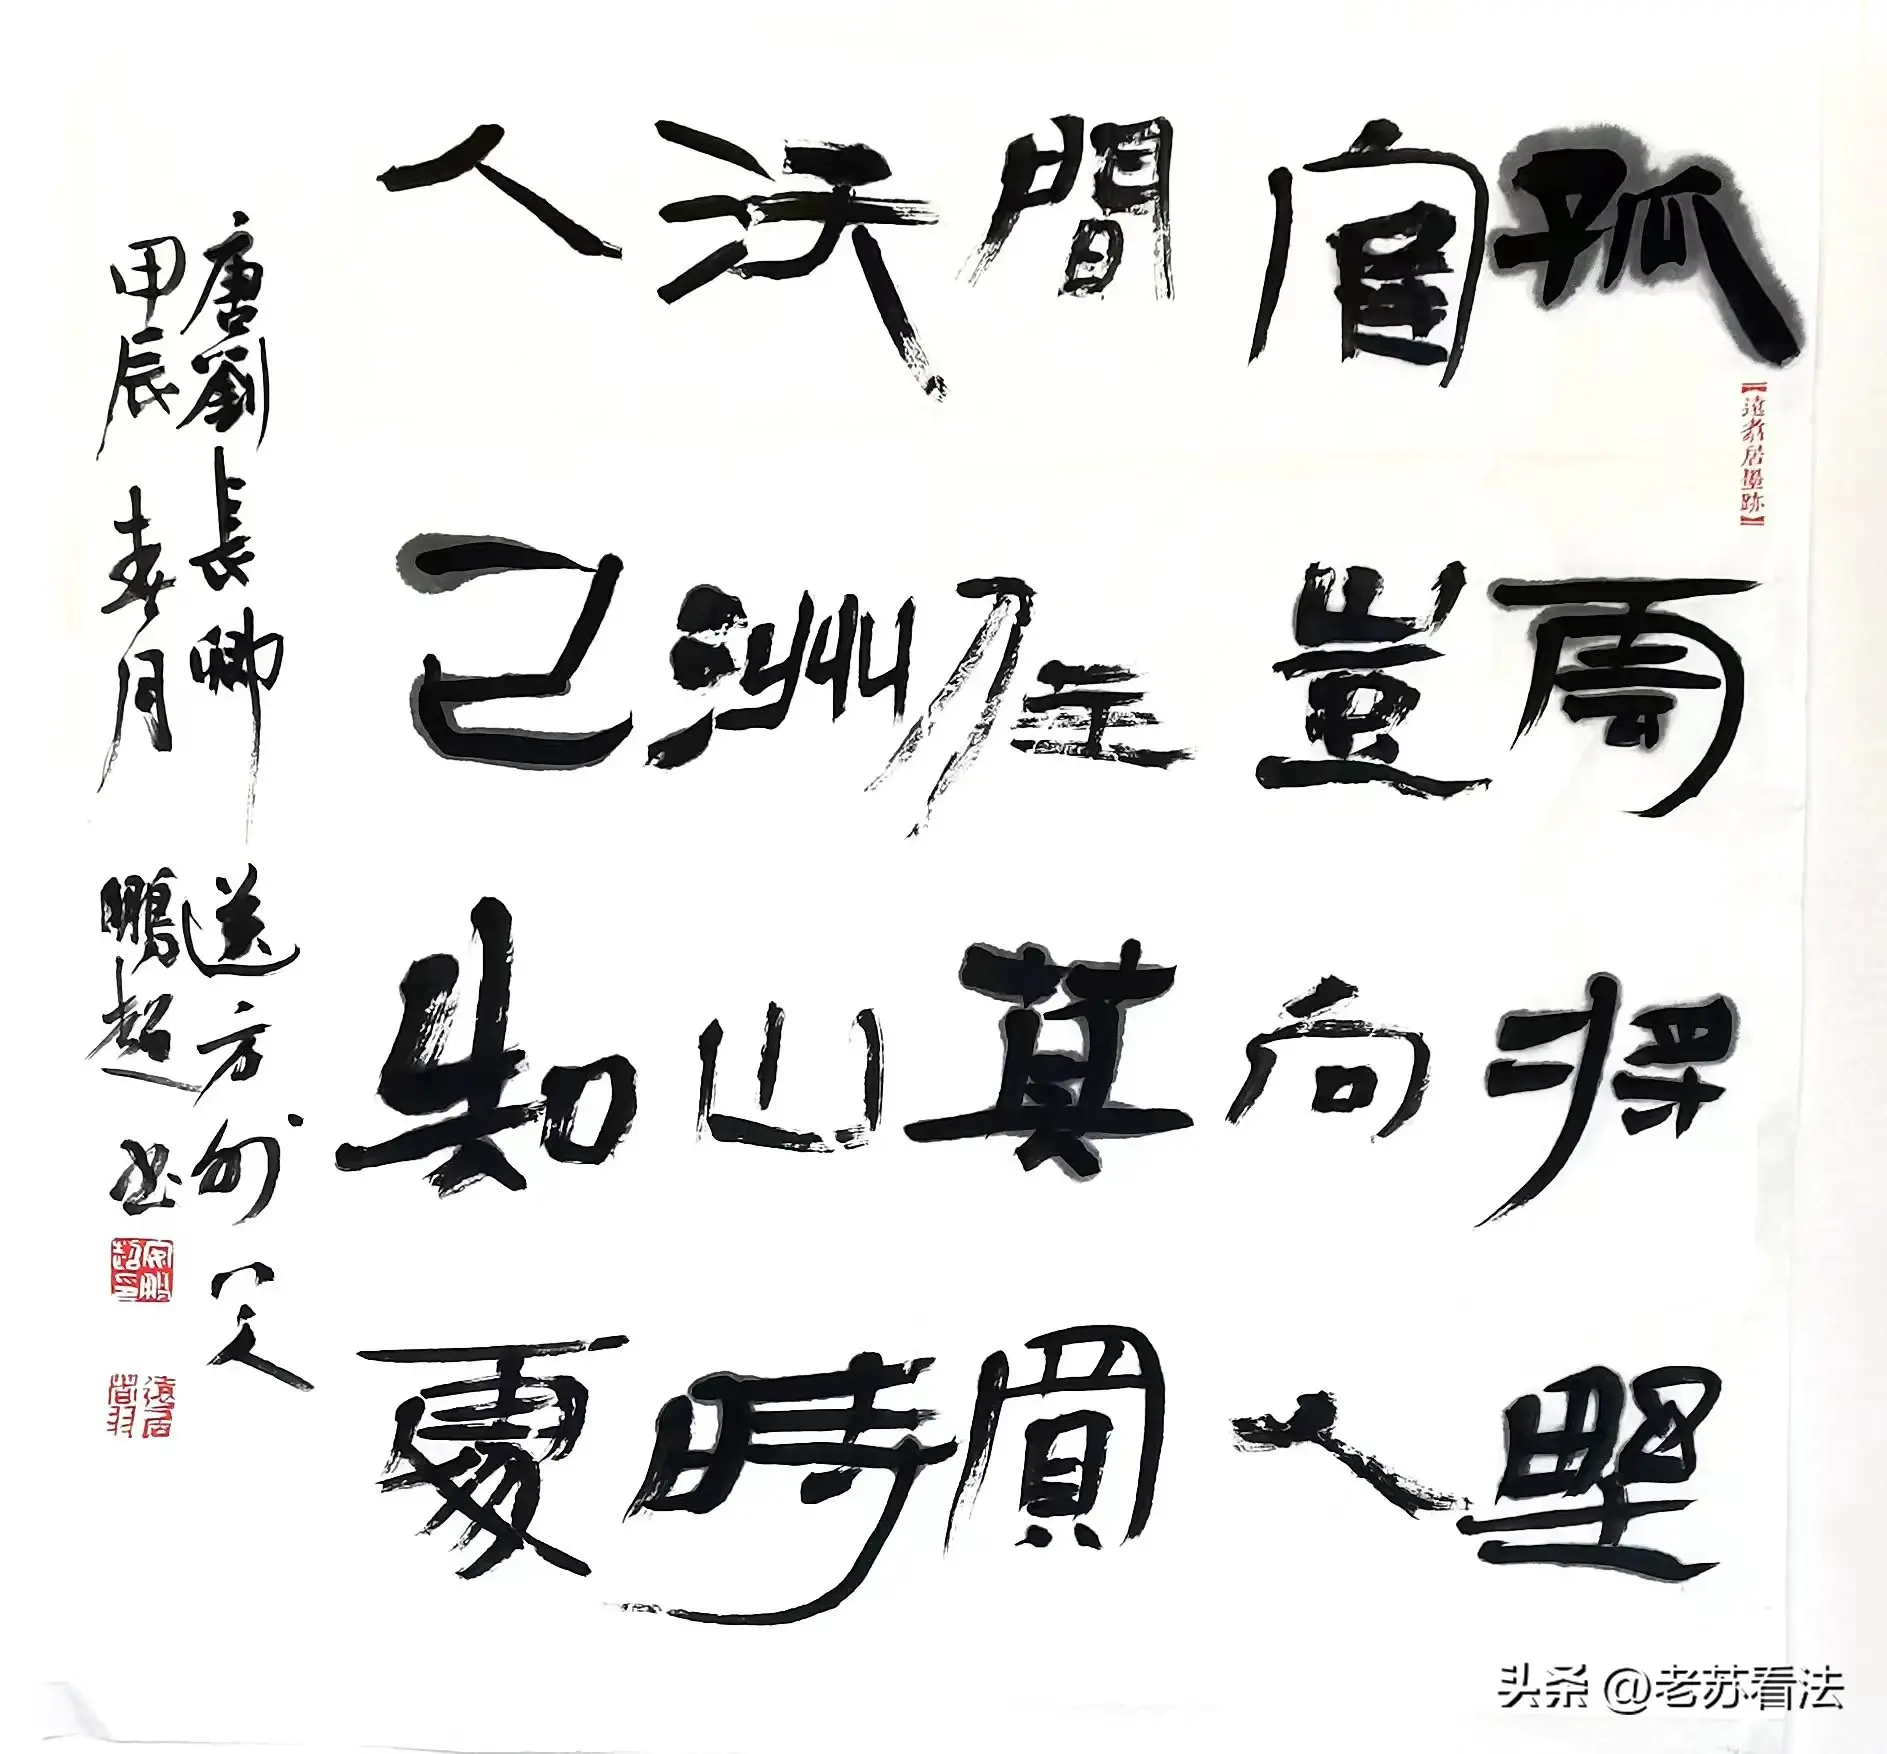 孤雲將野
寉豈向人
間住莫買
沃洲山時
人已知處
唐劉長卿送方外上人
甲辰春月鵬超書
【遠翥居墨跡】
鵬超印
遠翥居
头条 @老苏看法